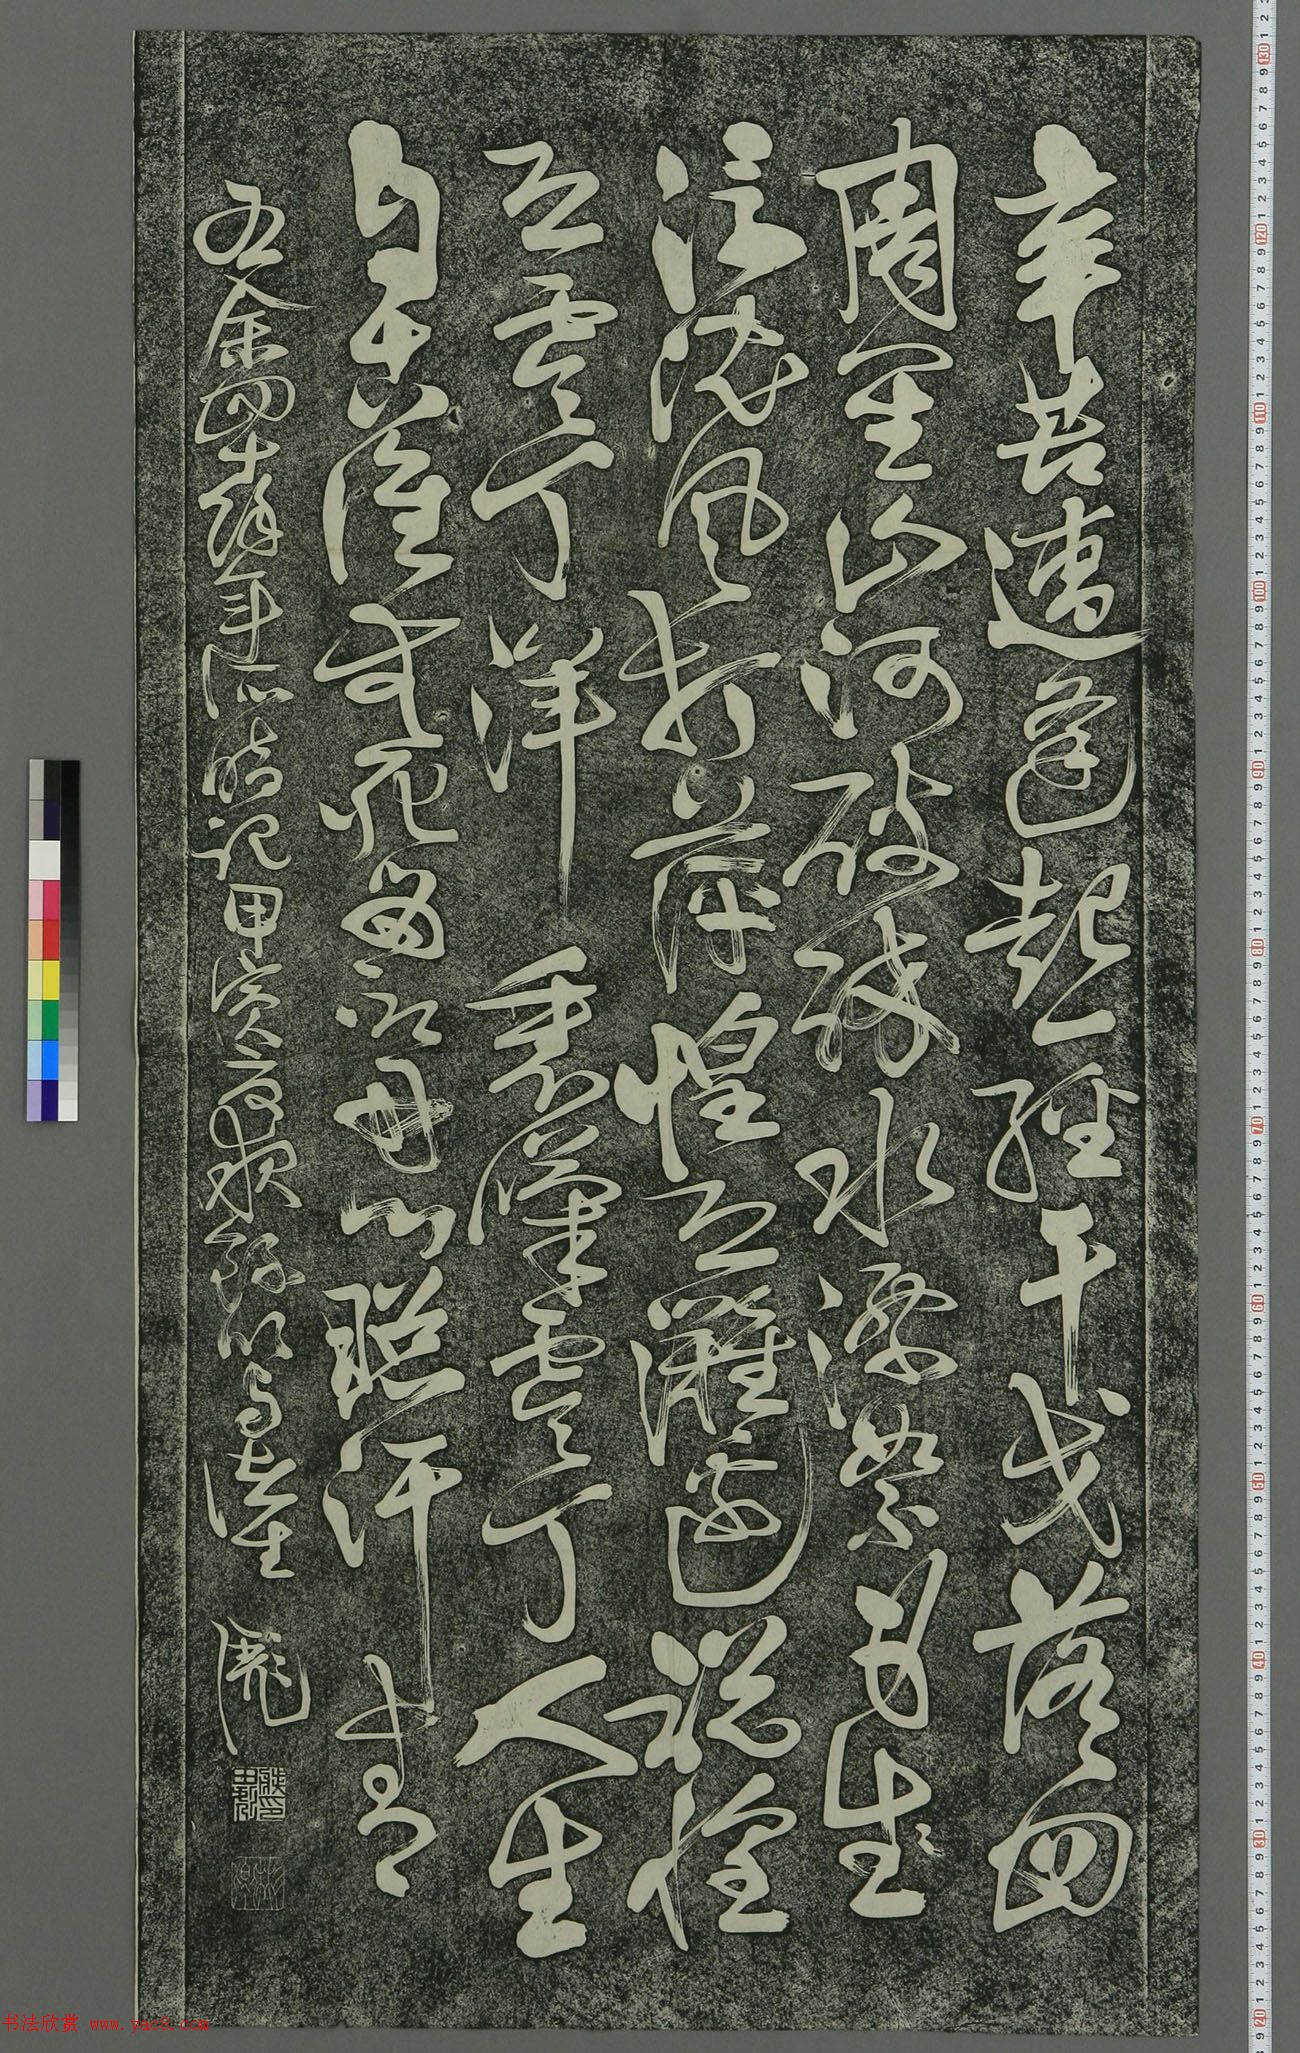 辛苦遭逢起一經干戈落四
周星山河破碎水漂絮身世
浮沈風打萍惶恐灘邊說惶
恐零丁洋裏歎零丁人生
自古誰無死留取丹心照汗青
余四十年記甲寅夜
书法欣赏 www.yac8.com